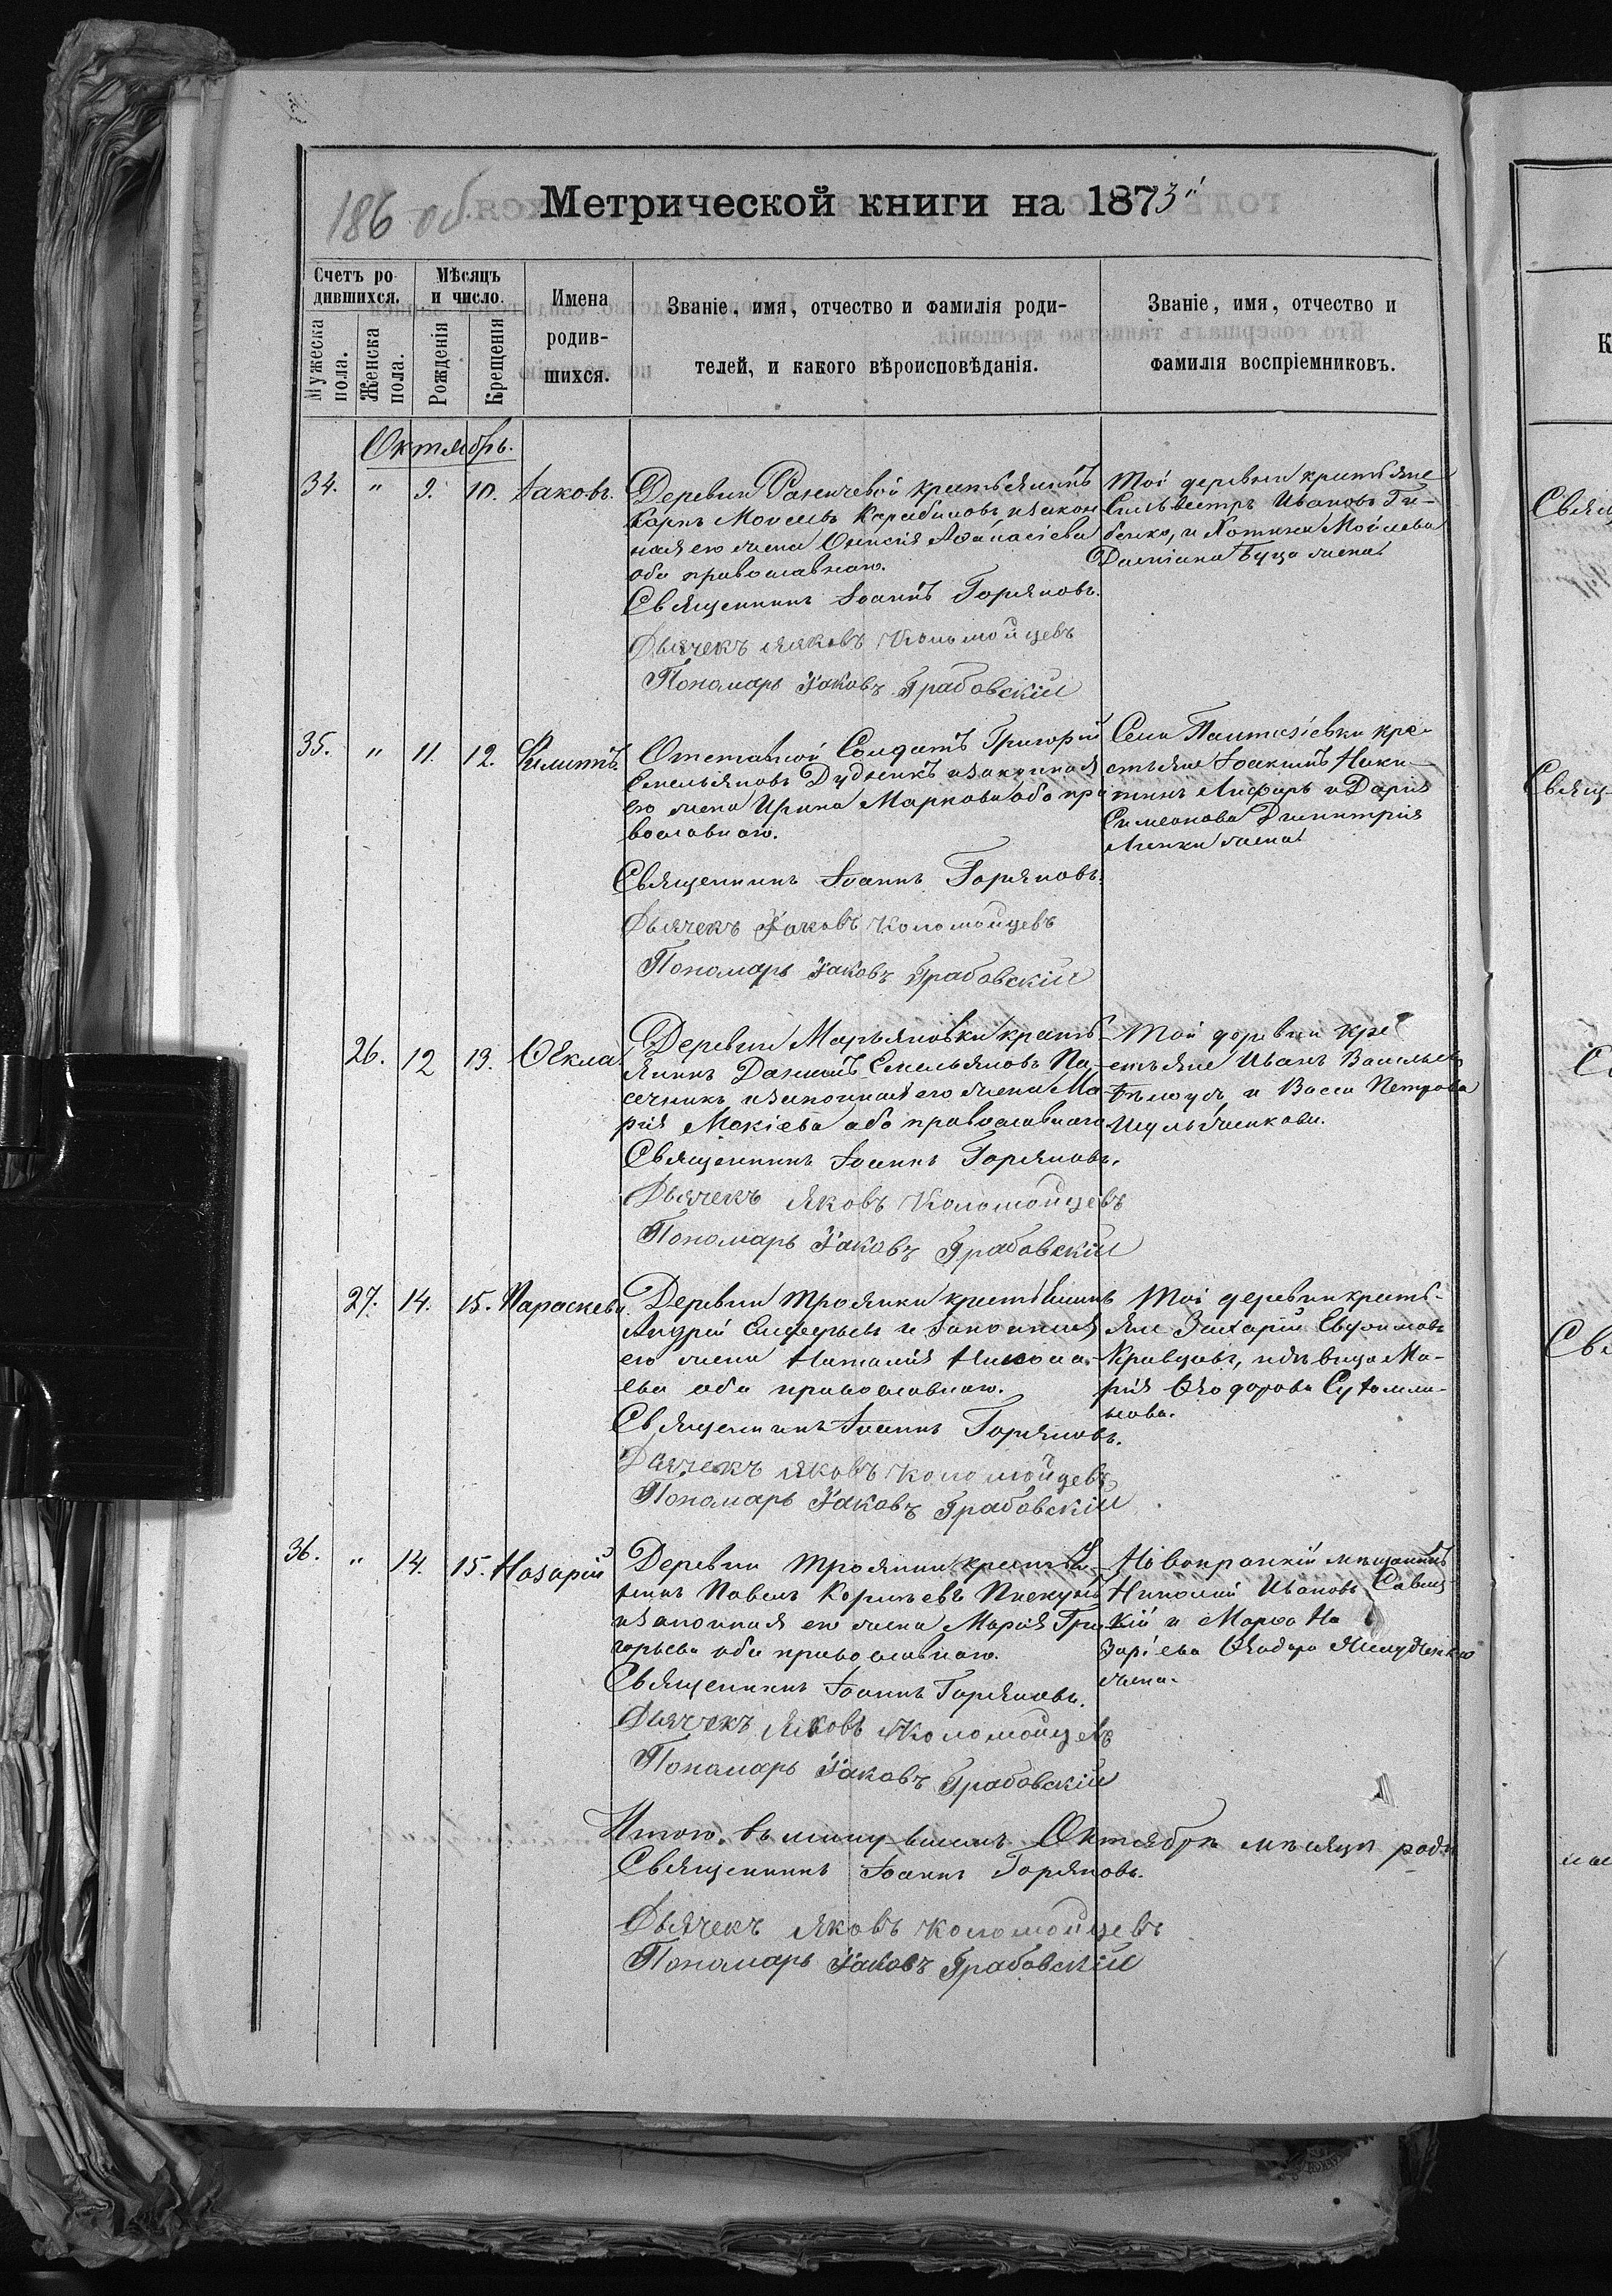 186 об.
Метрической книги на 1873
Счетъ ро-
дившихся.
Мѣсяцъ
и число.
Мужеска
пола.
Женска
пола.
Рожденія
Крещенія
Имена
родив-
шихся.
Званіе, имя, отчество и фамилія роди-
телей, и какого вѣроисповѣданія.
Званіе, имя, отчество и
фамилія воспріемниковъ.
Октябрь.
34. " 9. 10. Іаковъ.
Деревни крестьянинъ
Карпъ и закон
ная его жена Аѳанасіева
оба православнаго.
Священникъ Іоаннъ Горяновъ.
Дьячекъ Яковъ Коломойцевъ
Пономарь Іаковъ Грабовскій
Той деревни крестьяне
Сильвестръ Ивановъ Ги-
бенко, и Хотина Мойсеева
Даміана Буца жена
35. " 11. 12. Филиппъ.
Отставной Солдатъ Григорій
Емельяновъ Дудникъ и законная
его жена Ирина Маркова оба пра
вославнаго.
Священникъ Іоаннъ Горяновъ.
Дьячекъ Іаковъ Коломойцевъ
Пономарь Іаковъ Грабовскій
Села кре-
стьяне Іоакимъ Ники-
тинъ и Дарія
Симеонова Димитрія
жена
26. 12 13. Ѳекла
Деревни Марьяновки кресть
янинъ Даніилъ Емельяновъ Па-
сечникъ и законная его жена Ма
рія Мокіева оба православнаго
Священникъ Іоаннъ Горяновъ.
Дьячекъ Яковъ Коломойцевъ
Пономарь Іаковъ Грабовскій
Той деревни кре
стьяне Иванъ Васильевъ
Бѣлоусъ и Васса Петрова
Шульженкова.
27. 14. 15. Параскева.
Деревни Троянки крестьянинъ
Андрей и законная
его жена Наталія Никола-
ева оба православнаго.
Священникъ Іоаннъ Горяновъ.
Дьячекъ Яковъ Коломойцевъ
Пономарь Іаковъ Грабовскій
Той деревни кресть-
яне Захарій Евфимовъ
Кравцовъ, и дѣвица Ма-
рія Ѳеодорова Сухомли-
нова.
36. " 14. 15. Назарій
Деревни Троянки крестья-
нинъ Павелъ Корнѣевъ
и законная его жена Марія Гри
горьева оба православнаго.
Священникъ Іоаннъ Горяновъ.
Дьячекъ Яковъ Коломойцевъ
Пономарь Іаковъ Грабовскій
мѣщанинъ
Николай Ивановъ Савиц-
кій и Марѳа На
заріева Ѳеодора
жена.
Итого въ минувшемъ Октябрѣ мѣсяцѣ роди
Священникъ Іоаннъ Горяновъ.
Дьячекъ Яковъ Коломойцевъ
Пономарь Іаковъ Грабовскій